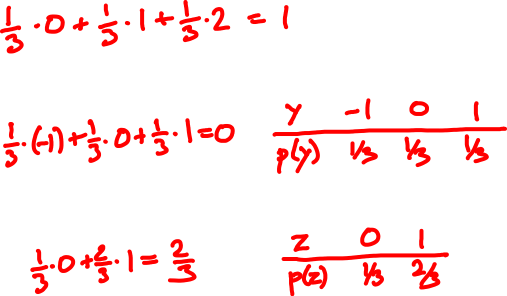 1/3 · 0 + 1/3 · 1 + 1/3 · 2 = 1
1/3 · (-1) + 1/3 · 0 + 1/3 · 1 = 0
y -1 0 1
p(y) 1/3 1/3 1/3
1/3 · 0 + 2/3 · 1 = 2/3
z 0 1
p(z) 1/3 2/3